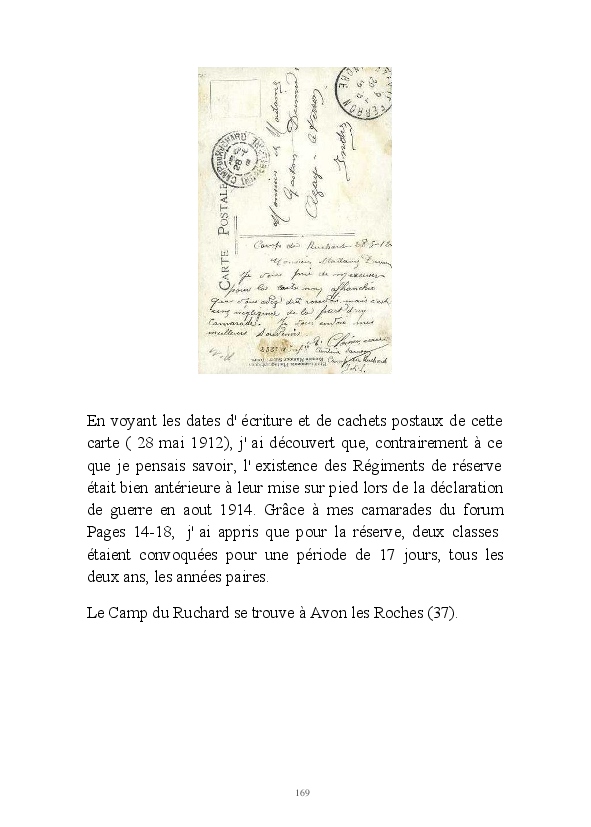 CARTE POSTALE
Monsieur & Madame
Gaston
Azay-
Indre
Camp du Ruchard 28-5-12
Monsieur Madame
Je vous prie de m'excuser
pour les carte non affranchie
que vous avez dû recevoir mais c'est
une négligence de la part d'un
camarade. Je vous envoie mes
meilleurs Souvenirs
Camp du Ruchard
En voyant les dates d' écriture et de cachets postaux de cette
carte ( 28 mai 1912), j' ai découvert que, contrairement à ce
que je pensais savoir, l' existence des Régiments de réserve
était bien antérieure à leur mise sur pied lors de la déclaration
de guerre en aout 1914. Grâce à mes camarades du forum
Pages 14-18, j' ai appris que pour la réserve, deux classes
étaient convoquées pour une période de 17 jours, tous les
deux ans, les années paires.
Le Camp du Ruchard se trouve à Avon les Roches (37).
169